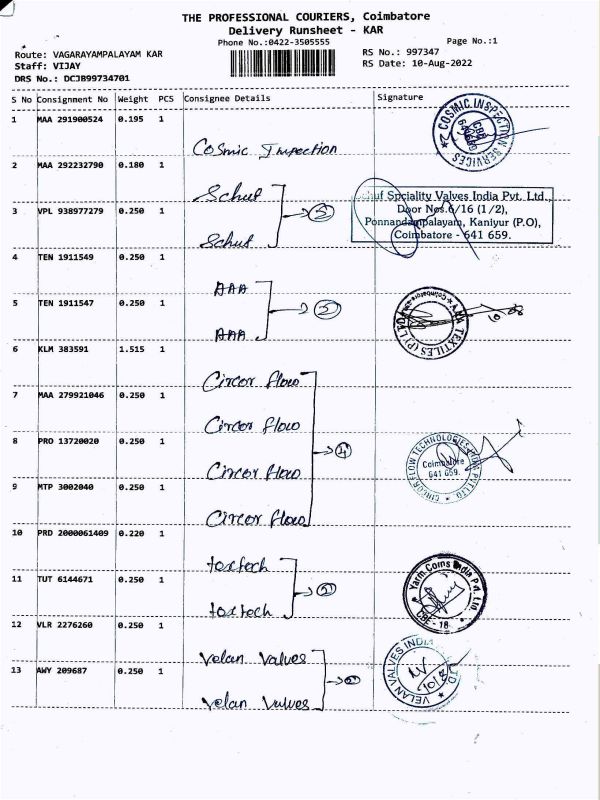 THE PROFESSIONAL COURIERS, Coimbatore
Delivery Runsheet - KAR
Phone No.:0422-3505555
Page No.:1
Route: VAGARAYAMPALAYAM KAR
RS No.: 997347
Staff: VIJAY
RS Date: 10-Aug-2022
DRS No.: DCJB99734701
S No Consignment No Weight PCS Consignee Details Signature
1 MAA 291900524 0.195 1
Cosmic Inspection
COSMIC INSPECTION SERVICES
2 MAA 292232790 0.180 1
Schuf
3 VPL 938977279 0.250 1
Schuf
Schuf Spciality Valves India Pvt. Ltd.,
Door Nos.6/16 (1/2),
Ponnandampalayam, Kaniyur (P.O),
Coimbatore - 641 659.
4 TEN 1911549 0.250 1
AAA
5 TEN 1911547 0.250 1
AAA
TEXTILES (P) LTD
6 KLM 383591 1.515 1
Circor flow
7 MAA 279921046 0.250 1
Circor flow
8 PRO 13720020 0.250 1
Circor flow
4
CIRCOR FLOW TECHNOLOGIES INDIA PVT LTD
Coimbatore
641 659.
9 MTP 3002040 0.250 1
Circor flow
10 PRD 2000061409 0.220 1
textech
11 TUT 6144671 0.250 1
textech
Yarm Coms India Pvt. Ltd.
CBE - 18
12 VLR 2276260 0.250 1
Velan Valves
13 AWY 209687 0.250 1
Velan Valves
VELAN VALVES INDIA
LTD